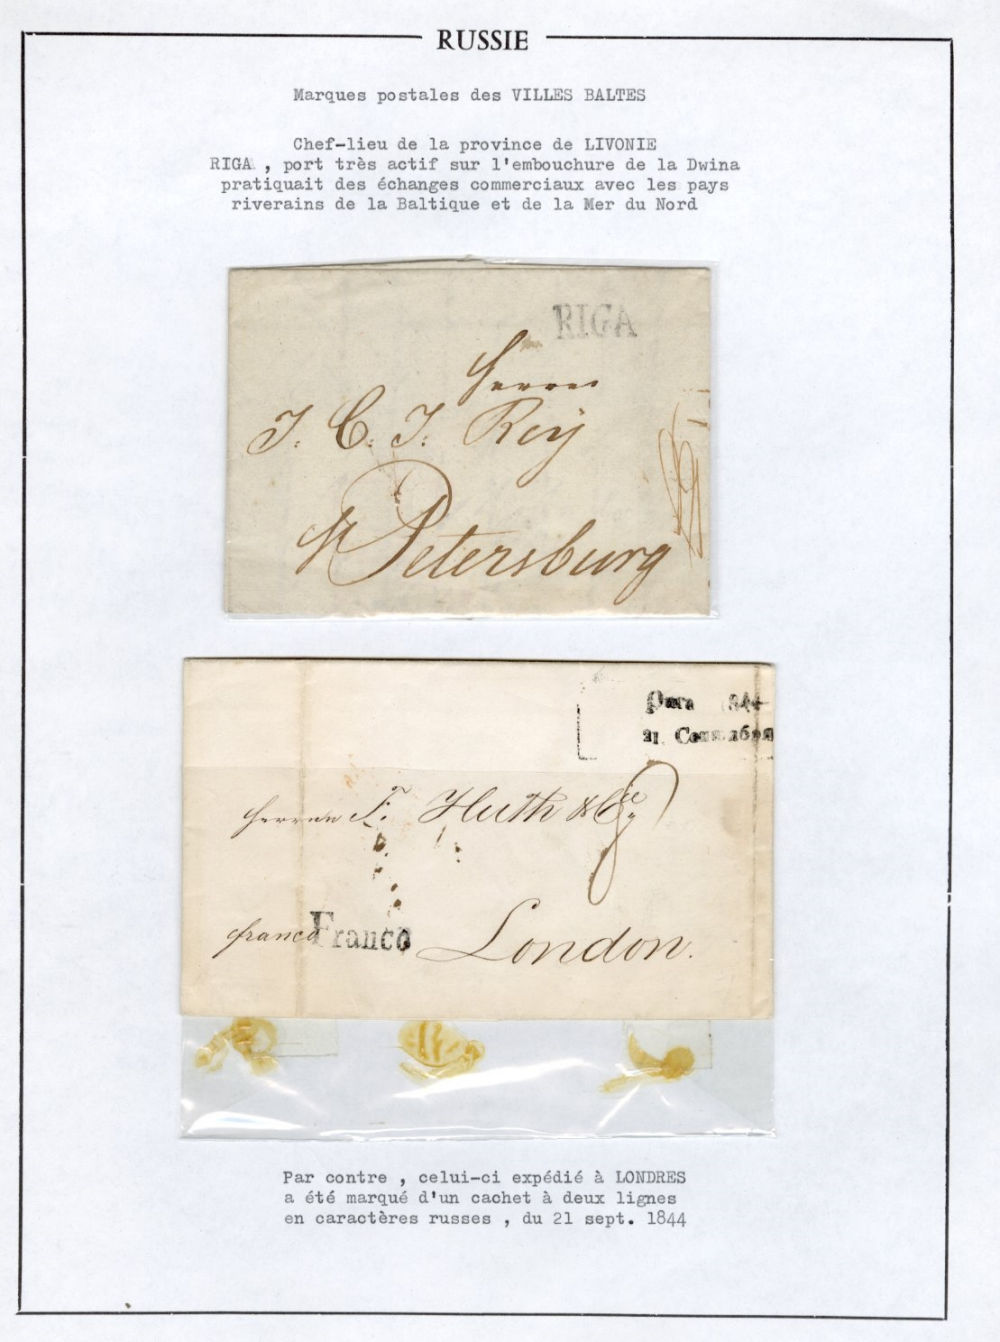 RUSSIE
Marques postales des VILLES BALTES
Chef-lieu de la province de LIVONIE
RIGA , port très actif sur l'embouchure de la Dwina
pratiquait des échanges commerciaux avec les pays
riverains de la Baltique et de la Mer du Nord
RIGA
Herren
J. C. J. Rey
St Petersburg
Рига 1844
21 Сентября
Herren F. Huth & Ce
franco Franco London.
Par contre , celui-ci expédié à LONDRES
a été marqué d'un cachet à deux lignes
en caractères russes , du 21 sept. 1844